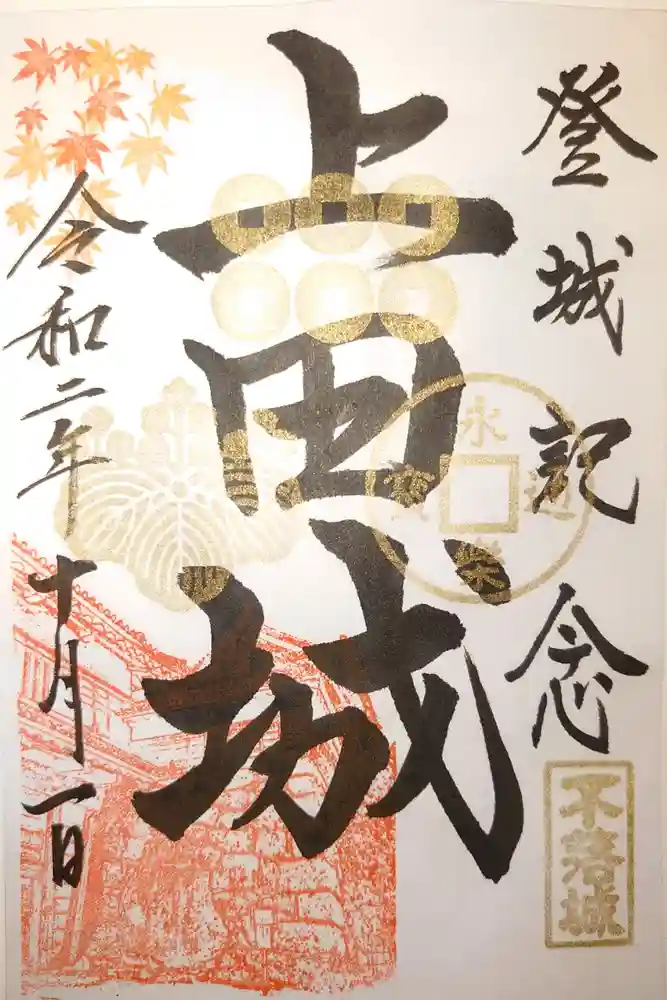 登城記念
上田城
永樂通寳
不落城
令和二年十月一日